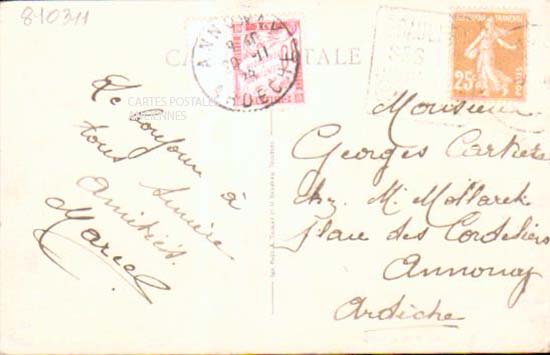 810311
CARTE POSTALE
ANNONAY
ARDECHE
CARTES POSTALES
ANCIENNES
RÉPUBLIQUE FRANÇAISE
25c
POSTES
Le bonjour à
tous
Amitiés.
Marcel
Monsieur
Georges Cartier
chez M. Mollarek
place des Cordeliers
Annonay
Ardèche